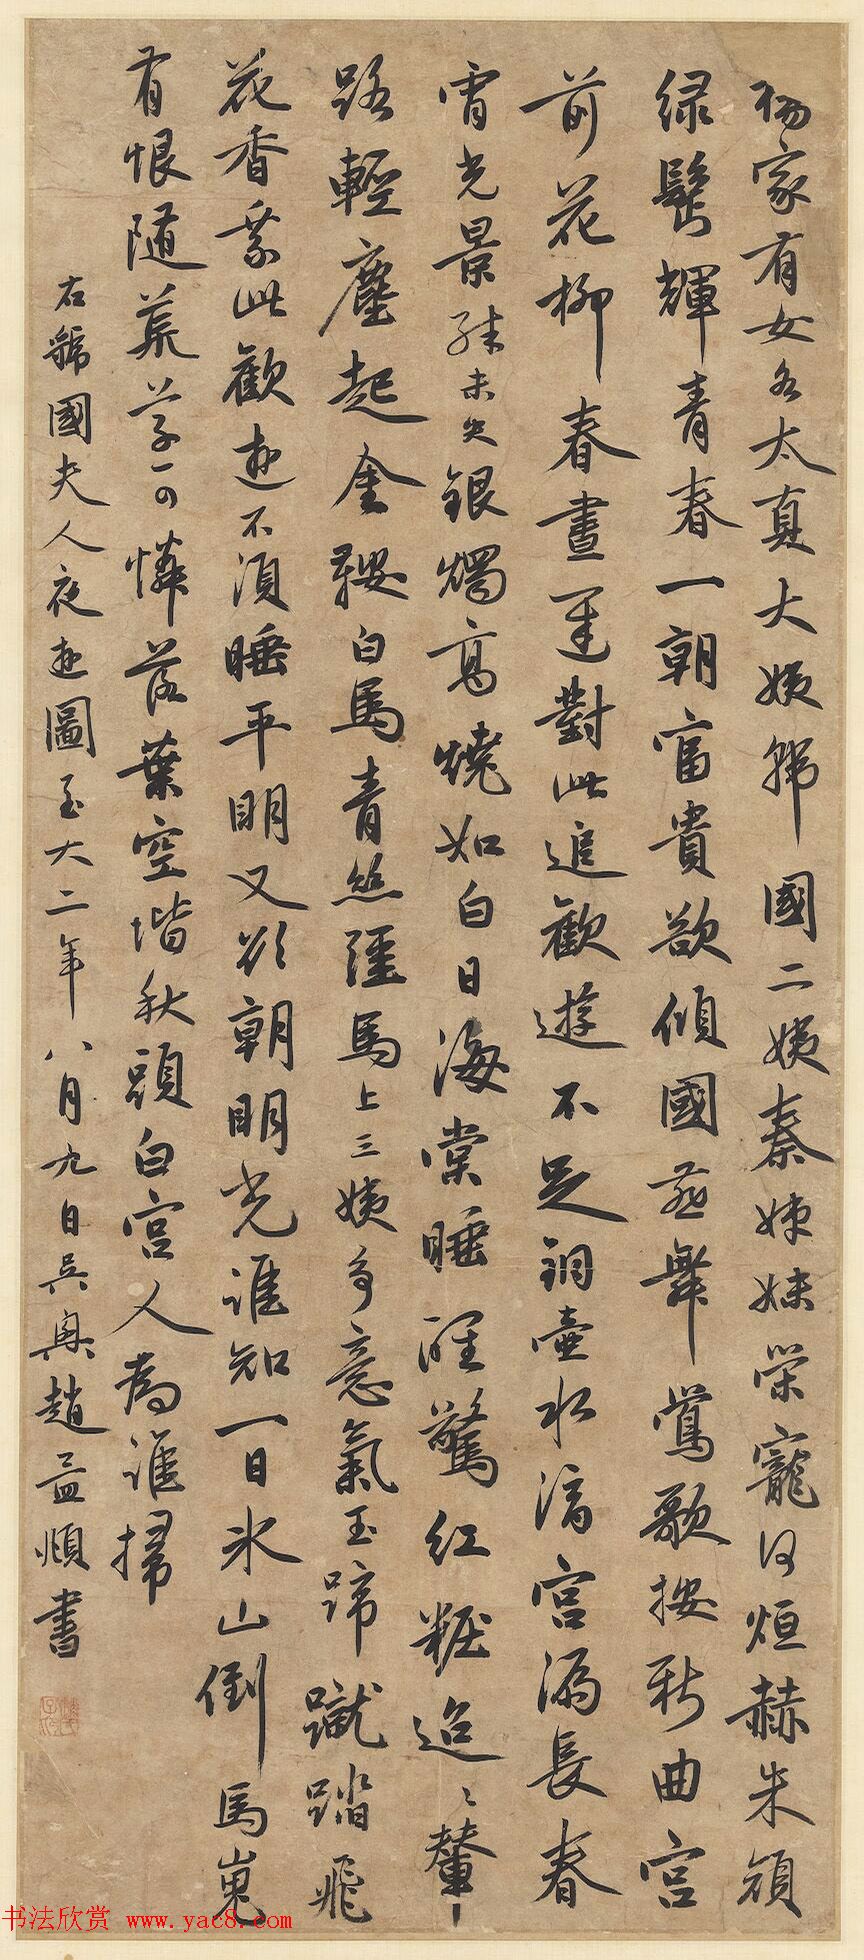 楊家有女名太真大姨虢國二姨秦姊妹榮寵何烜赫朱顏
綠鬢輝青春一朝富貴欲傾國燕舞鶯歌按新曲宮
前花柳春晝遲對此追歡遊不足銅壺水滴宮漏長春
宵光景殊未央銀燭高燒如白日海棠睡醒驚紅粧迢〻輦
路輕塵起金鞍白馬青絲韁馬上三姨多意氣玉蹄蹴踏飛
花香乘此歡遊不須睡平明又欲朝明光誰知一日冰山倒馬嵬
有恨隨荒草可憐落葉空堦秋頭白宮人為誰掃
右虢國夫人夜遊圖至大二年八月九日吳興趙孟頫書
书法欣赏 www.yac8.com